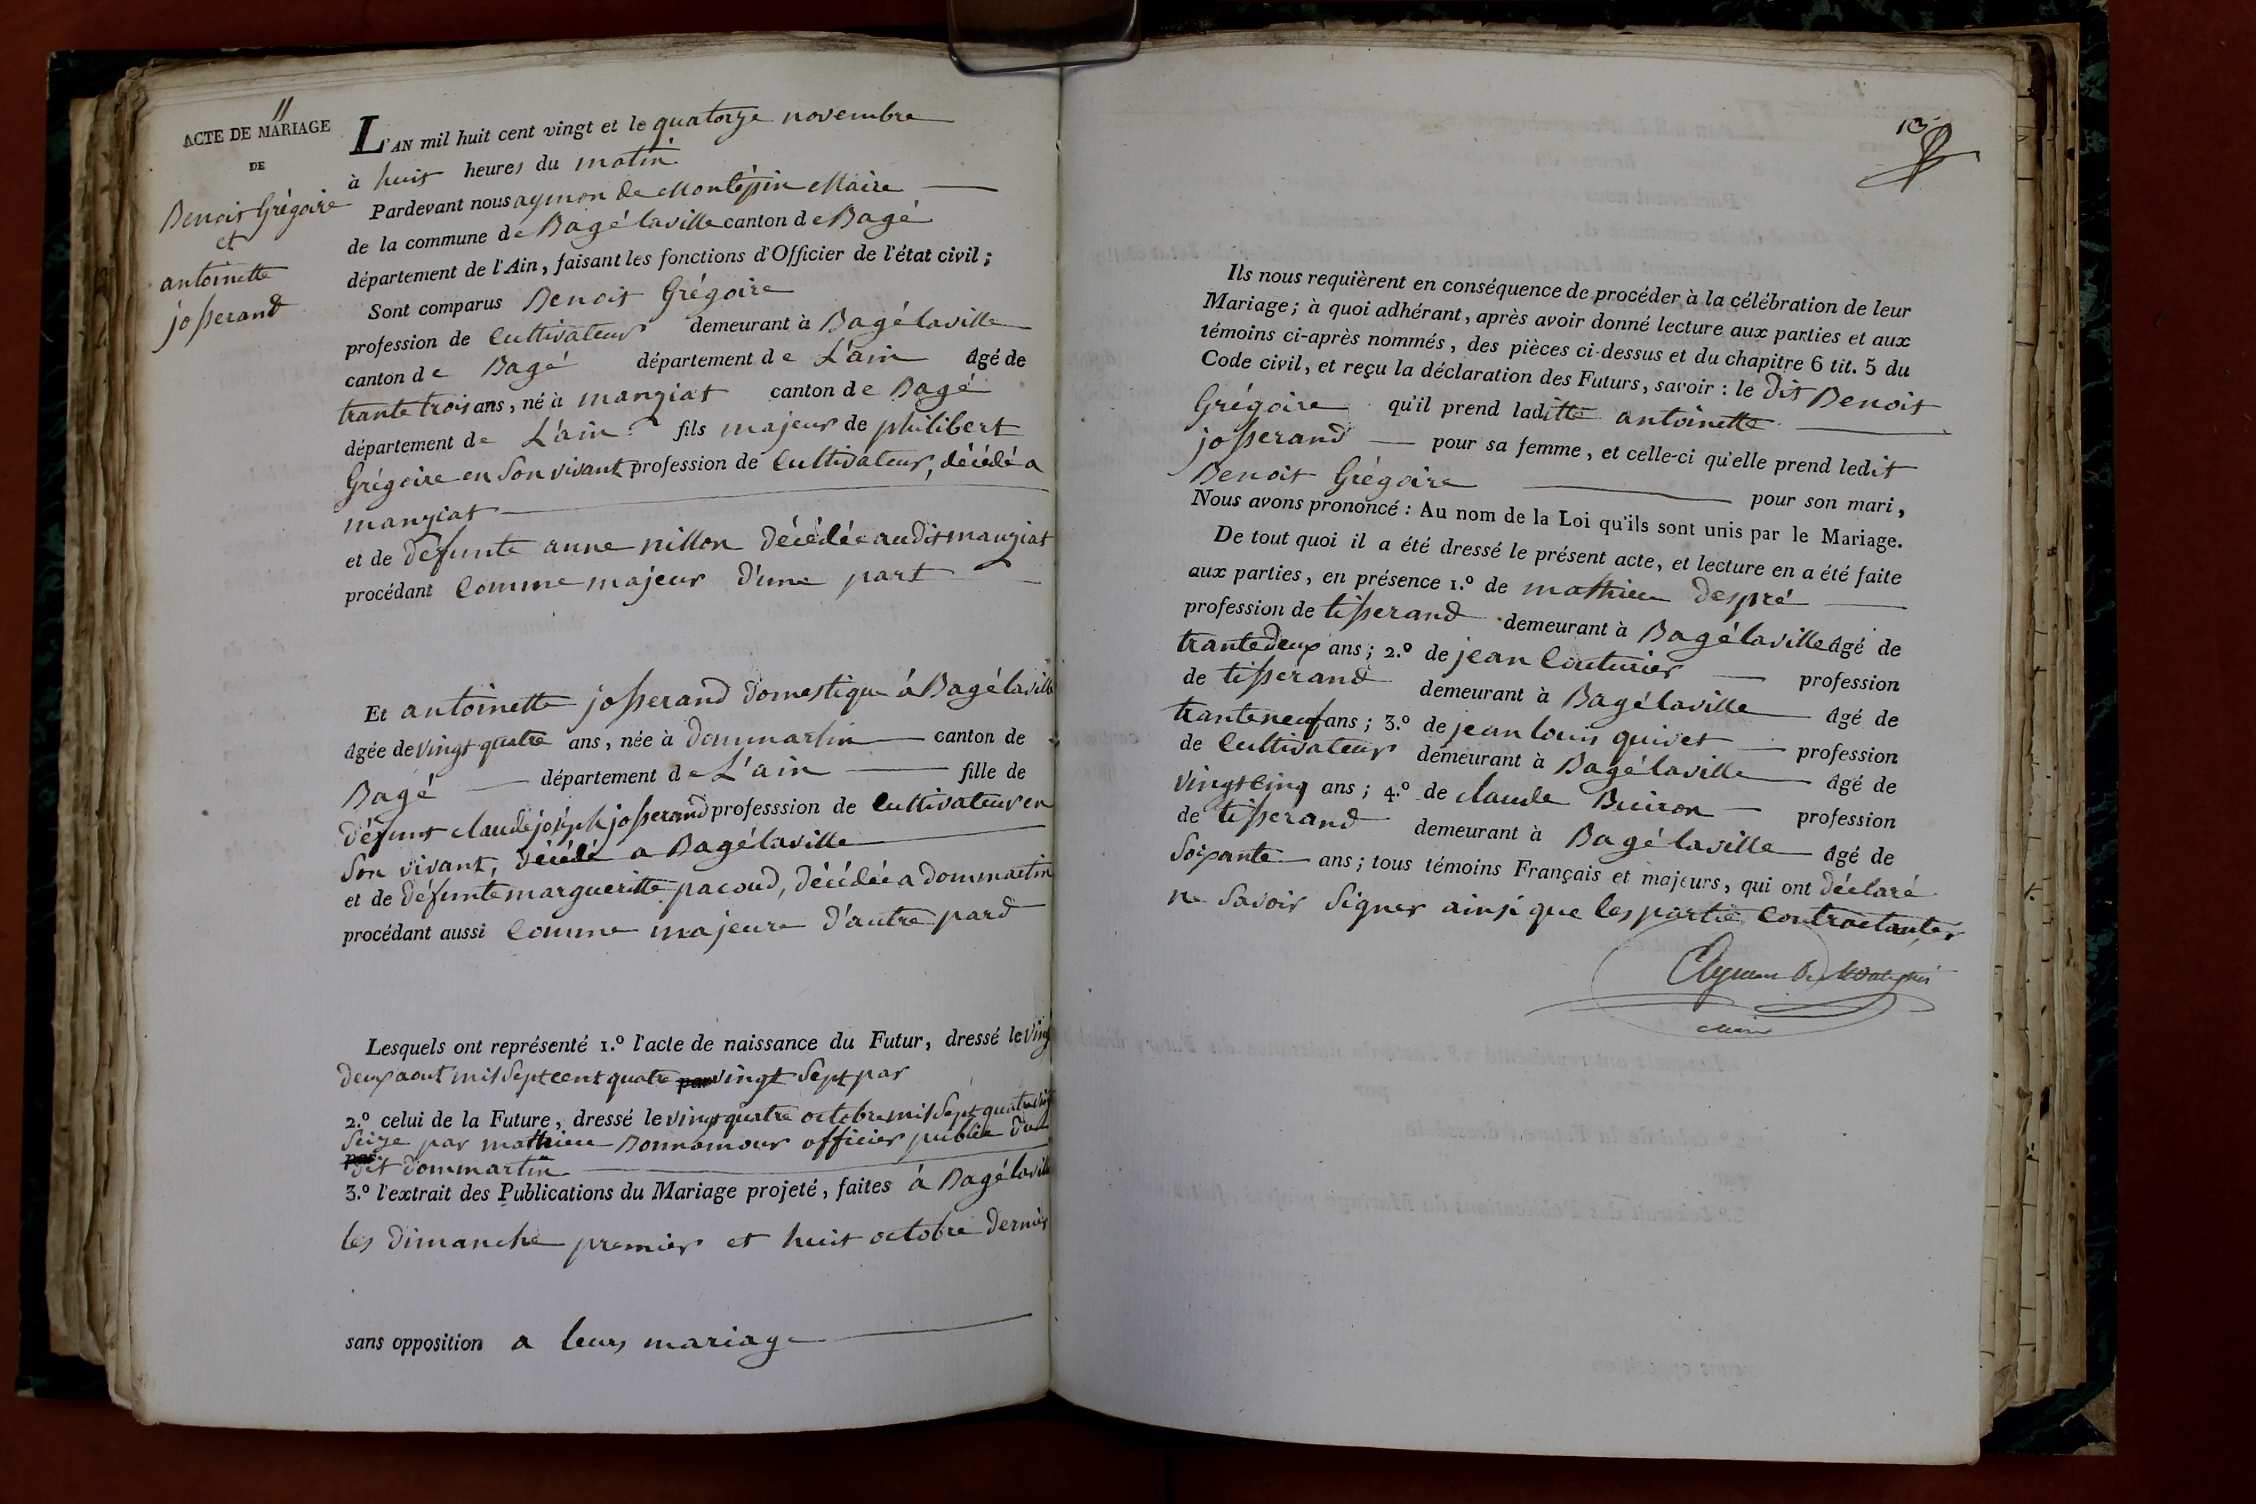 11
ACTE DE MARIAGE
DE
Benoit Grégoire
et
antoinette
josserand
L'AN mil huit cent vingt et le quatorze novembre
à huit heures du matin
Pardevant nous aymon de Montépin Maire
de la commune de Bagé laville canton de Bagé
département de l'Ain, faisant les fonctions d'Officier de l'état civil;
Sont comparus Benoit Grégoire
profession de Cultivateur demeurant à Bagé laville
canton de Bagé département de L'ain âgé de
trante trois ans, né à manziat canton de Bagé
département de L'ain fils majeur de philibert
Grégoire en son vivant profession de Cultivateur, décédé a
manziat
et de défunte anne nillon décédée audit manziat
procédant Comme majeur d'une part
Et antoinette josserand domestique á Bagé laville
âgée de vingt quatre ans, née à dommartin canton de
Bagé département de L'ain fille de
défunt claude joseph josserand professsion de Cultivateur en
son vivant, décédé a Bagé laville
et de défunte margueritte pacoud, décédée a dommartin
procédant aussi Comme majeure d'autre pard
Lesquels ont représenté 1.º l'acte de naissance du Futur, dressé le vingt
deux aout mil sept cent quatre par vingt sept par
2.º celui de la Future, dressé le vingt quatre octobre mil sept quatre vingt
seize par mathieu Bonnamour officier public du
par dit dommartin
3.º l'extrait des Publications du Mariage projeté, faites á Bagé laville
les dimanche premier et huit octobre dernier
sans opposition a leurs mariage
13
Ils nous requièrent en conséquence de procéder à la célébration de leur
Mariage; à quoi adhérant, après avoir donné lecture aux parties et aux
témoins ci-après nommés, des pièces ci-dessus et du chapitre 6 tit. 5 du
Code civil, et reçu la déclaration des Futurs, savoir: le dit Benoit
Grégoire qu'il prend laditte antoinette
josserand pour sa femme, et celle-ci qu'elle prend ledit
Benoit Grégoire pour son mari,
Nous avons prononcé: Au nom de la Loi qu'ils sont unis par le Mariage.
De tout quoi il a été dressé le présent acte, et lecture en a été faite
aux parties, en présence 1.º de mathieu despré
profession de tisserand demeurant à Bagé laville âgé de
trante deux ans; 2.º de jean Couturier profession
de tisserand demeurant à Bagé laville âgé de
trante neuf ans; 3.º de jean louis quivet profession
de Cultivateur demeurant à Bagé laville âgé de
vingt Cinq ans; 4.º de claude Buiron profession
de tisserand demeurant à Bagé laville âgé de
Soixante ans; tous témoins Français et majeurs, qui ont déclaré
ne savoir signer ainsi que les partie Contractantes
Aymon De Montépin
Maire